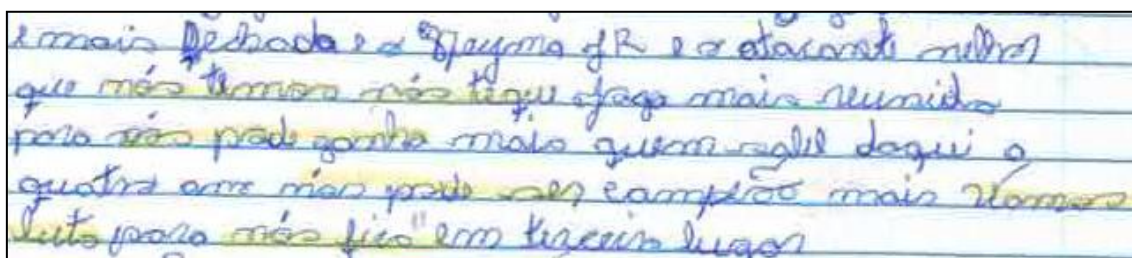 e mais fechada e o Neyma JR e o atacante melhor
que nós temos nós tequi joga mais reunido
para nós pode ganha mais quem sabe daqui a
quatro ano nós pode ser campeão mais vamos
luta para nós fica em terceiro lugar